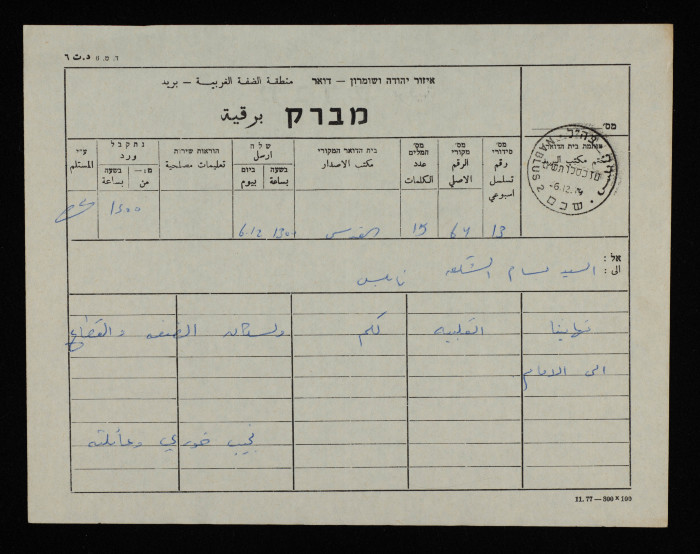 ד. מ. 11 د.ت ٦
איזור יהודה ושומרון — דואר منطقة الضفة الغربية — بريد
מברק برقية
מס'
חותמת בית הדואר
ختم مكتب البريد
NABLUS 2
-6.12.79
שכם
מס' סידורי رقم تسلسل اسبوعي
מס' מקורי الرقم الاصلي
מס' המלים عدد الكلمات
בית הדואר המקורי مكتب الاصدار
שלח ارسل
בשעה بساعة
ביום بيوم
הוראות שירות تعليمات مصلحية
נתקבל ورد
בשעה بساعة
מ:— من
ע״י المستلم
13 64 15 القدس 1300 6.12 1500
אל: الى: السيد بسام الشكعه نابلس
تهانينا القلبيه لكم ولسكان الضفه والقطاع
الى الامام
نجيب خوري وعائلته
11.77—300×100